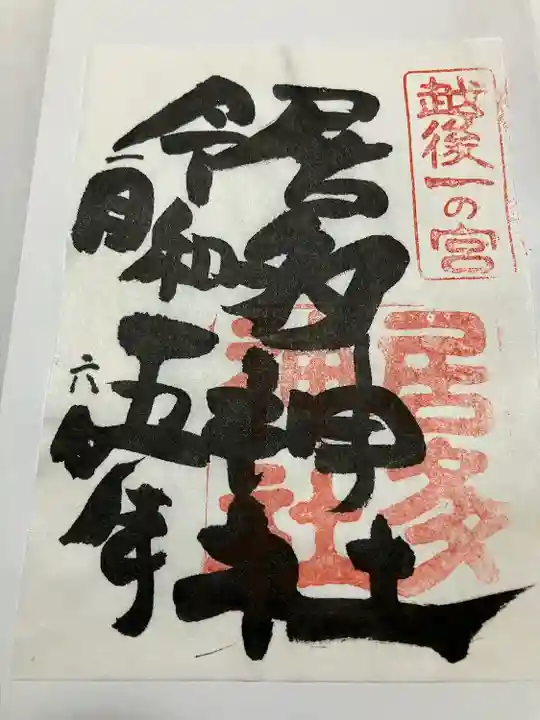 越後一の宮
居多神社
居多神社
令和五年
二月六日